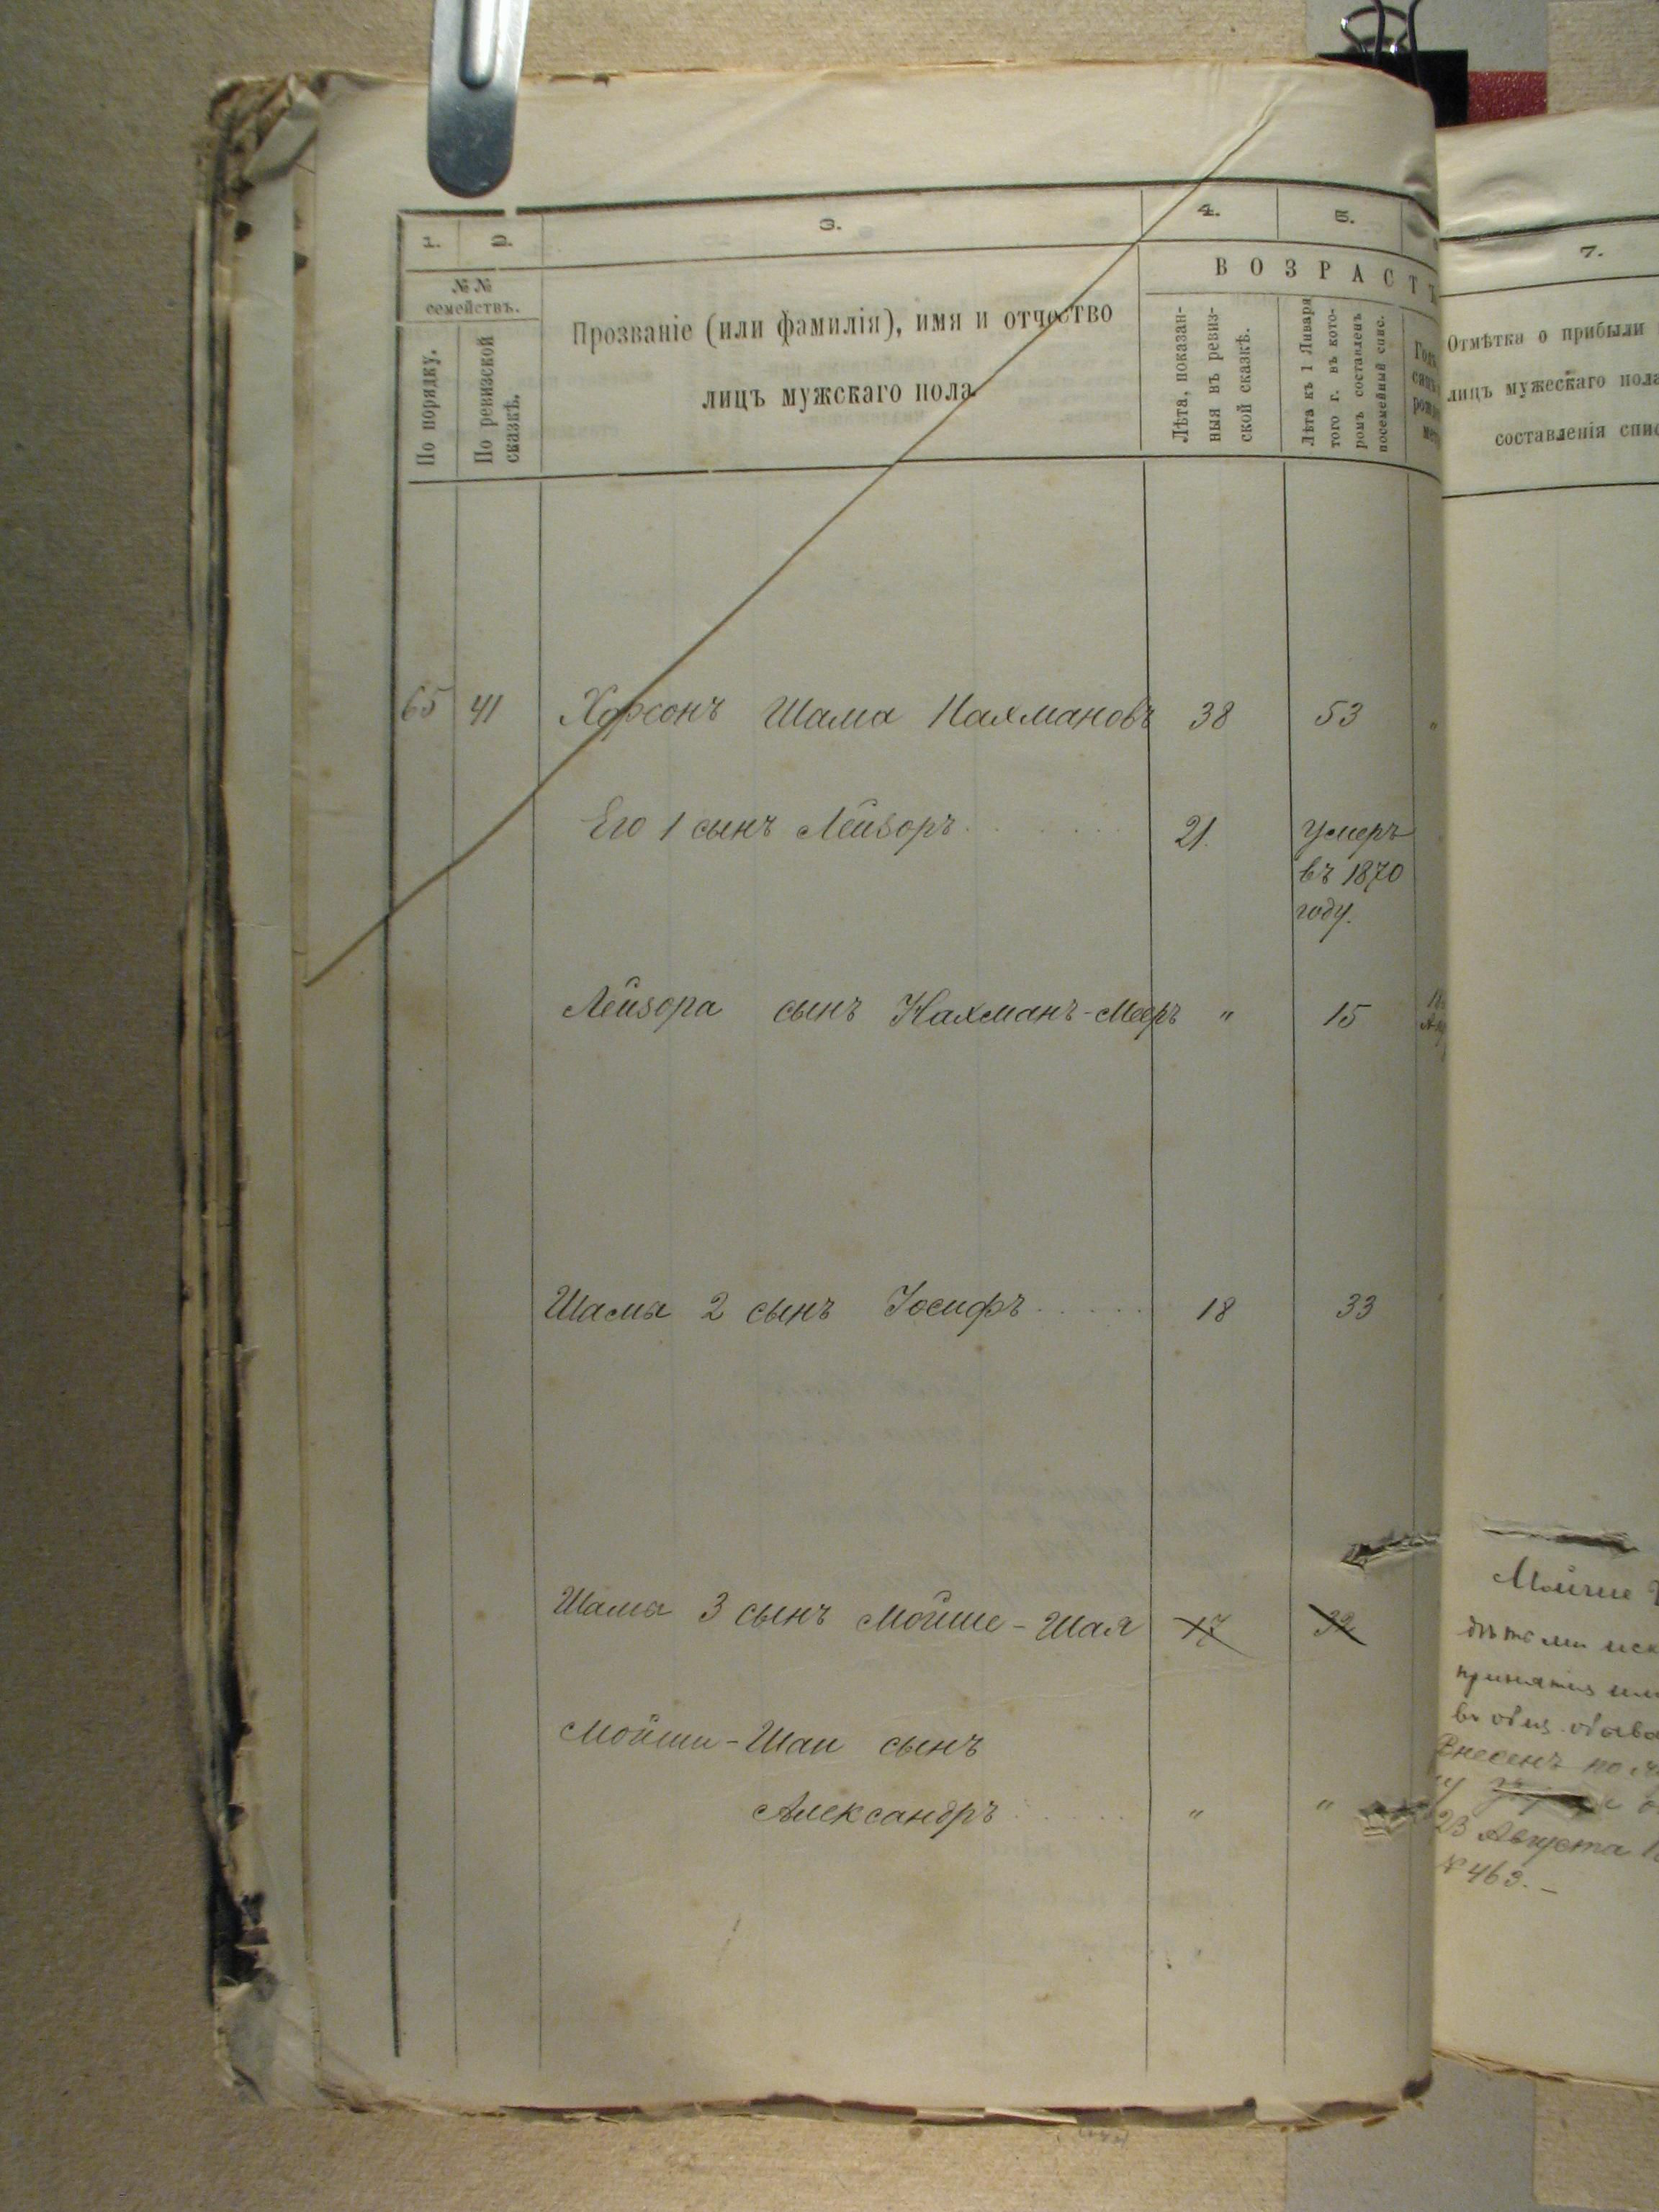 1. 2. 3. 4. 5.
№№ семействъ.
По порядку.
По ревизской сказкѣ.
Прозваніе (или фамилія), имя и отчество
лицъ мужскаго пола
ВОЗРАСТЪ
Лѣта, показан-
ныя въ ревиз-
ской сказкѣ.
Лѣта къ 1 Января
того г. въ кото-
ромъ составленъ
посемейный спис.
65 41 Хорсонъ Шама Нахмановъ 38 53 "
Его 1 сынъ Лейзоръ 21. умеръ
въ 1870
году.
Лейзора сынъ Нахманъ-Мееръ " 15
Шамы 2 сынъ Іосифъ 18 33
Шама 3 сынъ Мойше-Шая 17 32
Мойши-Шаи сынъ
Александръ " "
7.
Отмѣтка о прибыли
лицъ мужескаго пола
составленія
Мойше
дѣтьми
принятія
въ
Внесенъ по
23 Августа
№ 463. –